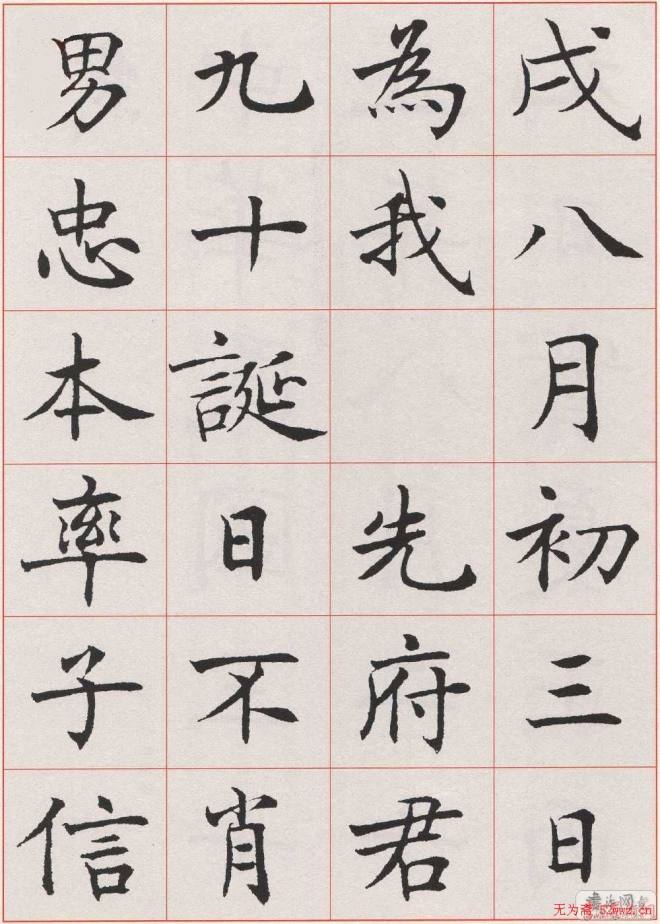 戌八月初三日
為我 先府君
九十誕日不肖
男忠本率子信
无为斋.52wwz.cn